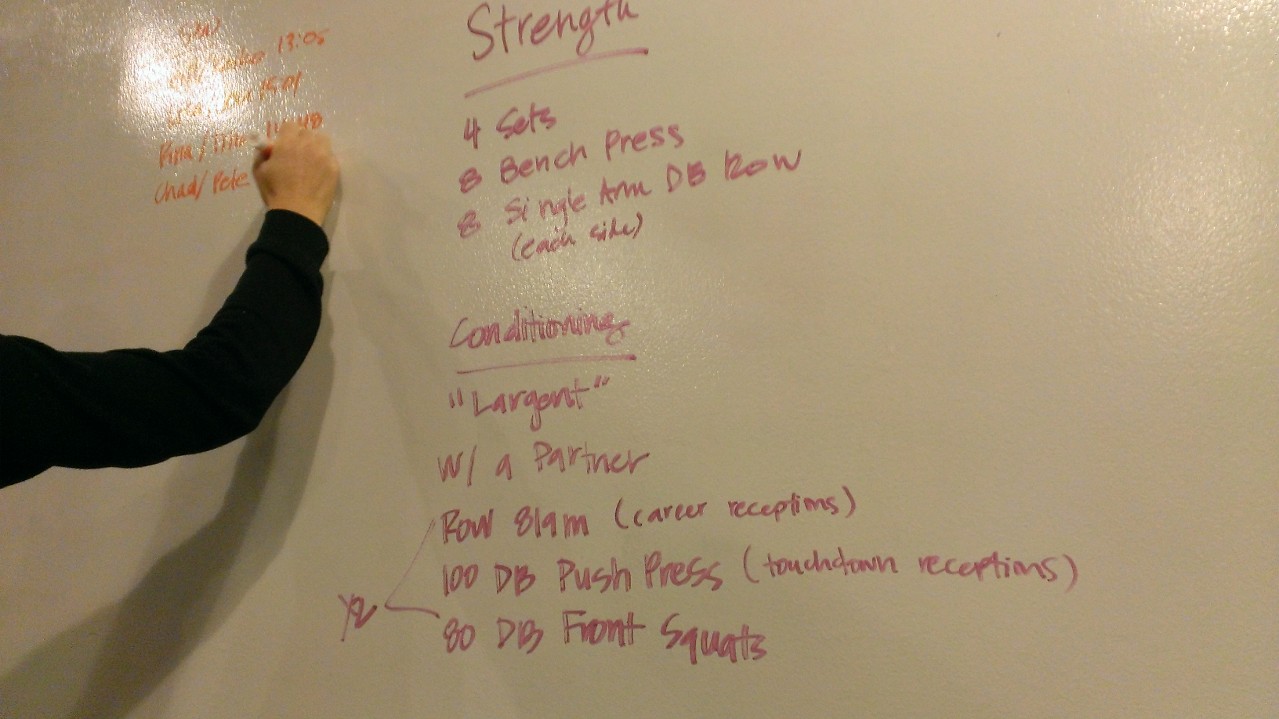 13:05
15:01
Chad/ Pete
Strength
4 Sets
8 Bench Press
8 Single Arm DB Row
(each side)
Conditioning
"Largent"
W/ a Partner
Row 819m (career receptions)
100 DB Push Press (touchdown receptions)
80 DB Front Squats